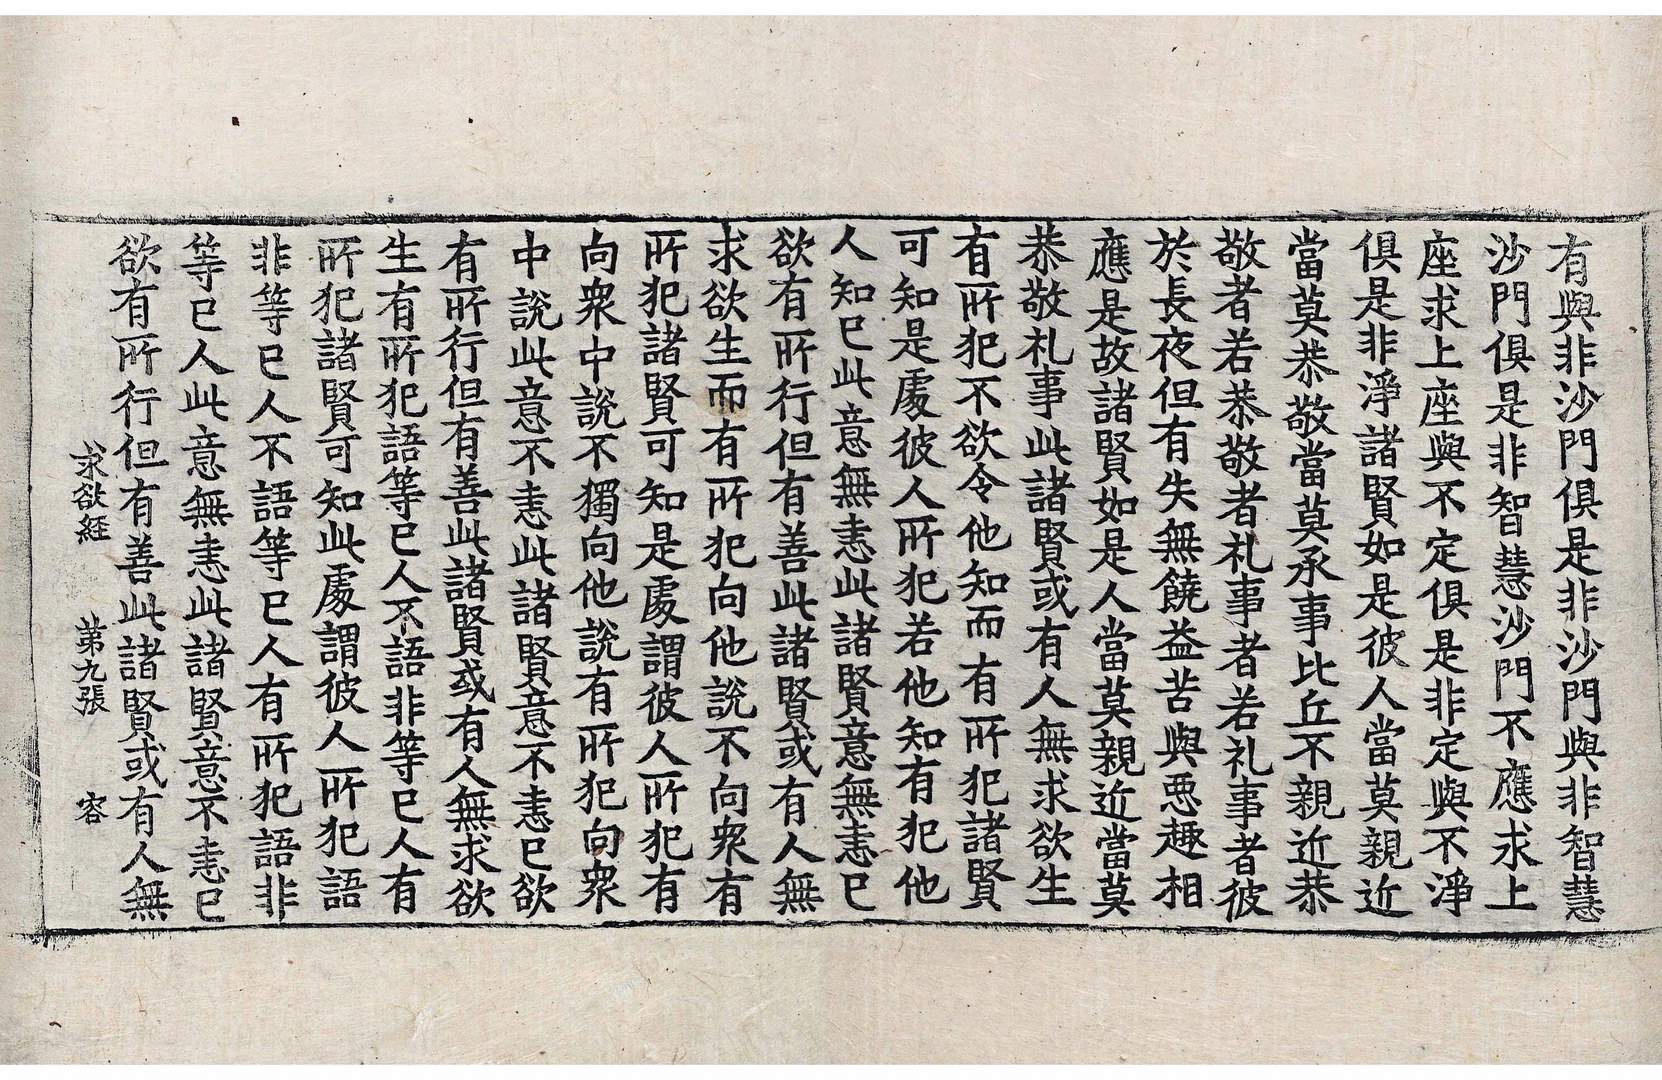 有與非沙門俱是非沙門與非智慧
沙門俱是非智慧沙門不應求上
座求上座與不定俱是非定與不淨
俱是非淨諸賢如是彼人當莫親近
當莫恭敬當莫承事比丘不親近恭
敬者若恭敬者礼事者若礼事者彼
於長夜但有失無饒益苦與悪趣相
應是故諸賢如是人當莫親近當莫
恭敬礼事此諸賢或有人無求欲生
有所犯不欲令他知而有所犯諸賢
可知是處彼人所犯若他知有犯他
人知已此意無恚此諸賢意無恚已
欲有所行但有善此諸賢或有人無
求欲生而有所犯向他說不向衆有
所犯諸賢可知是處謂彼人所犯有
向衆中說不獨向他說有所犯向衆
中說此意不恚此諸賢意不恚已欲
有所行但有善此諸賢或有人無求欲
生有所犯語等已人不語非等已人有
所犯諸賢可知此處謂彼人所犯語
非等已人不語等已人有所犯語非
等已人此意無恚此諸賢意不恚已
欲有所行但有善此諸賢或有人無
求欲経 第九張 容